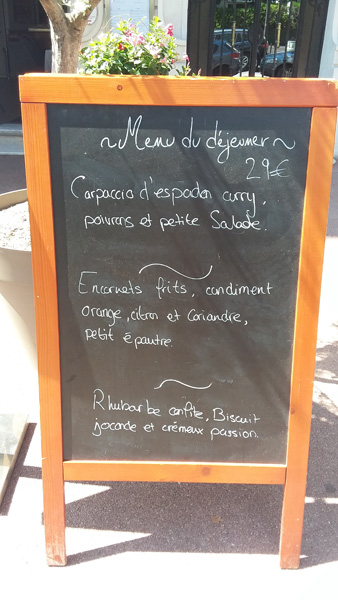 ~ Menu du déjeuner ~
29€
Carpaccio d'espadon curry,
poivrons et petite Salade.
Encornets frits, condiment
orange, citron et Coriandre,
petit épautre.
Rhubarbe confite, Biscuit
joconde et crémeux passion.